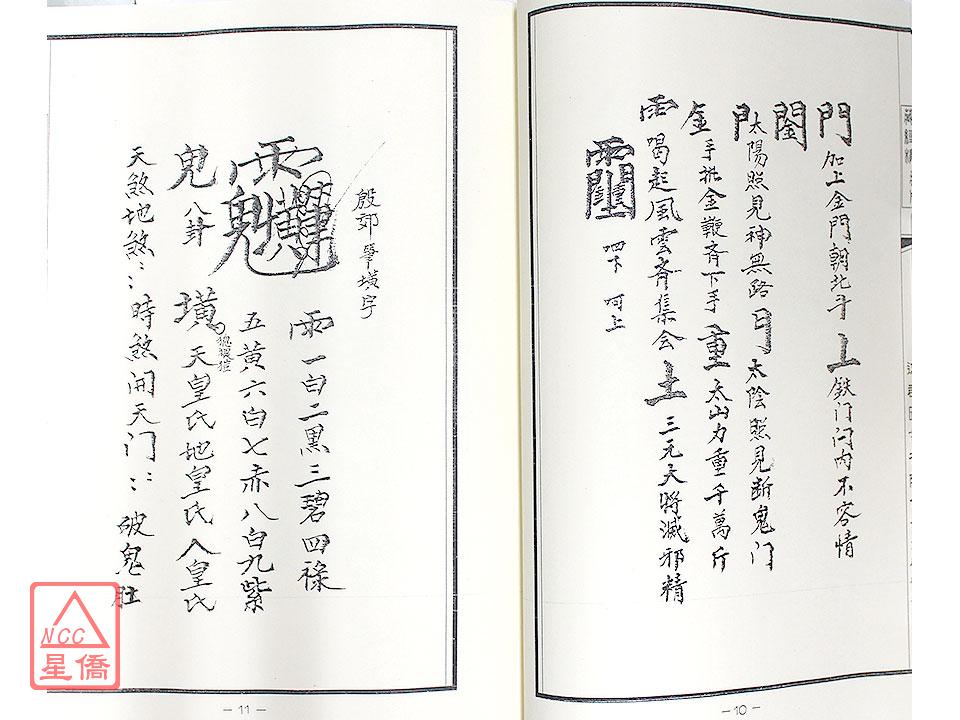 門 加上金門朝北斗 上 鉄门闩内不容情
閠
太陽照見神無路 日 太陰照見断鬼门
金 手执金鞭斉下手 重 太山力重千萬斤
雨 喝起風雲斉集会 土 三元大將滅邪精
四下 呵上
殷郊
字
雨 一白二黑三碧四祿
五黄六白七赤八白九紫
鬼 八卦 璜 天皇氏地皇氏人皇氏
天煞地煞:: 時煞開天门:: 破鬼肚
NCC
星僑
- 10 -
- 11 -